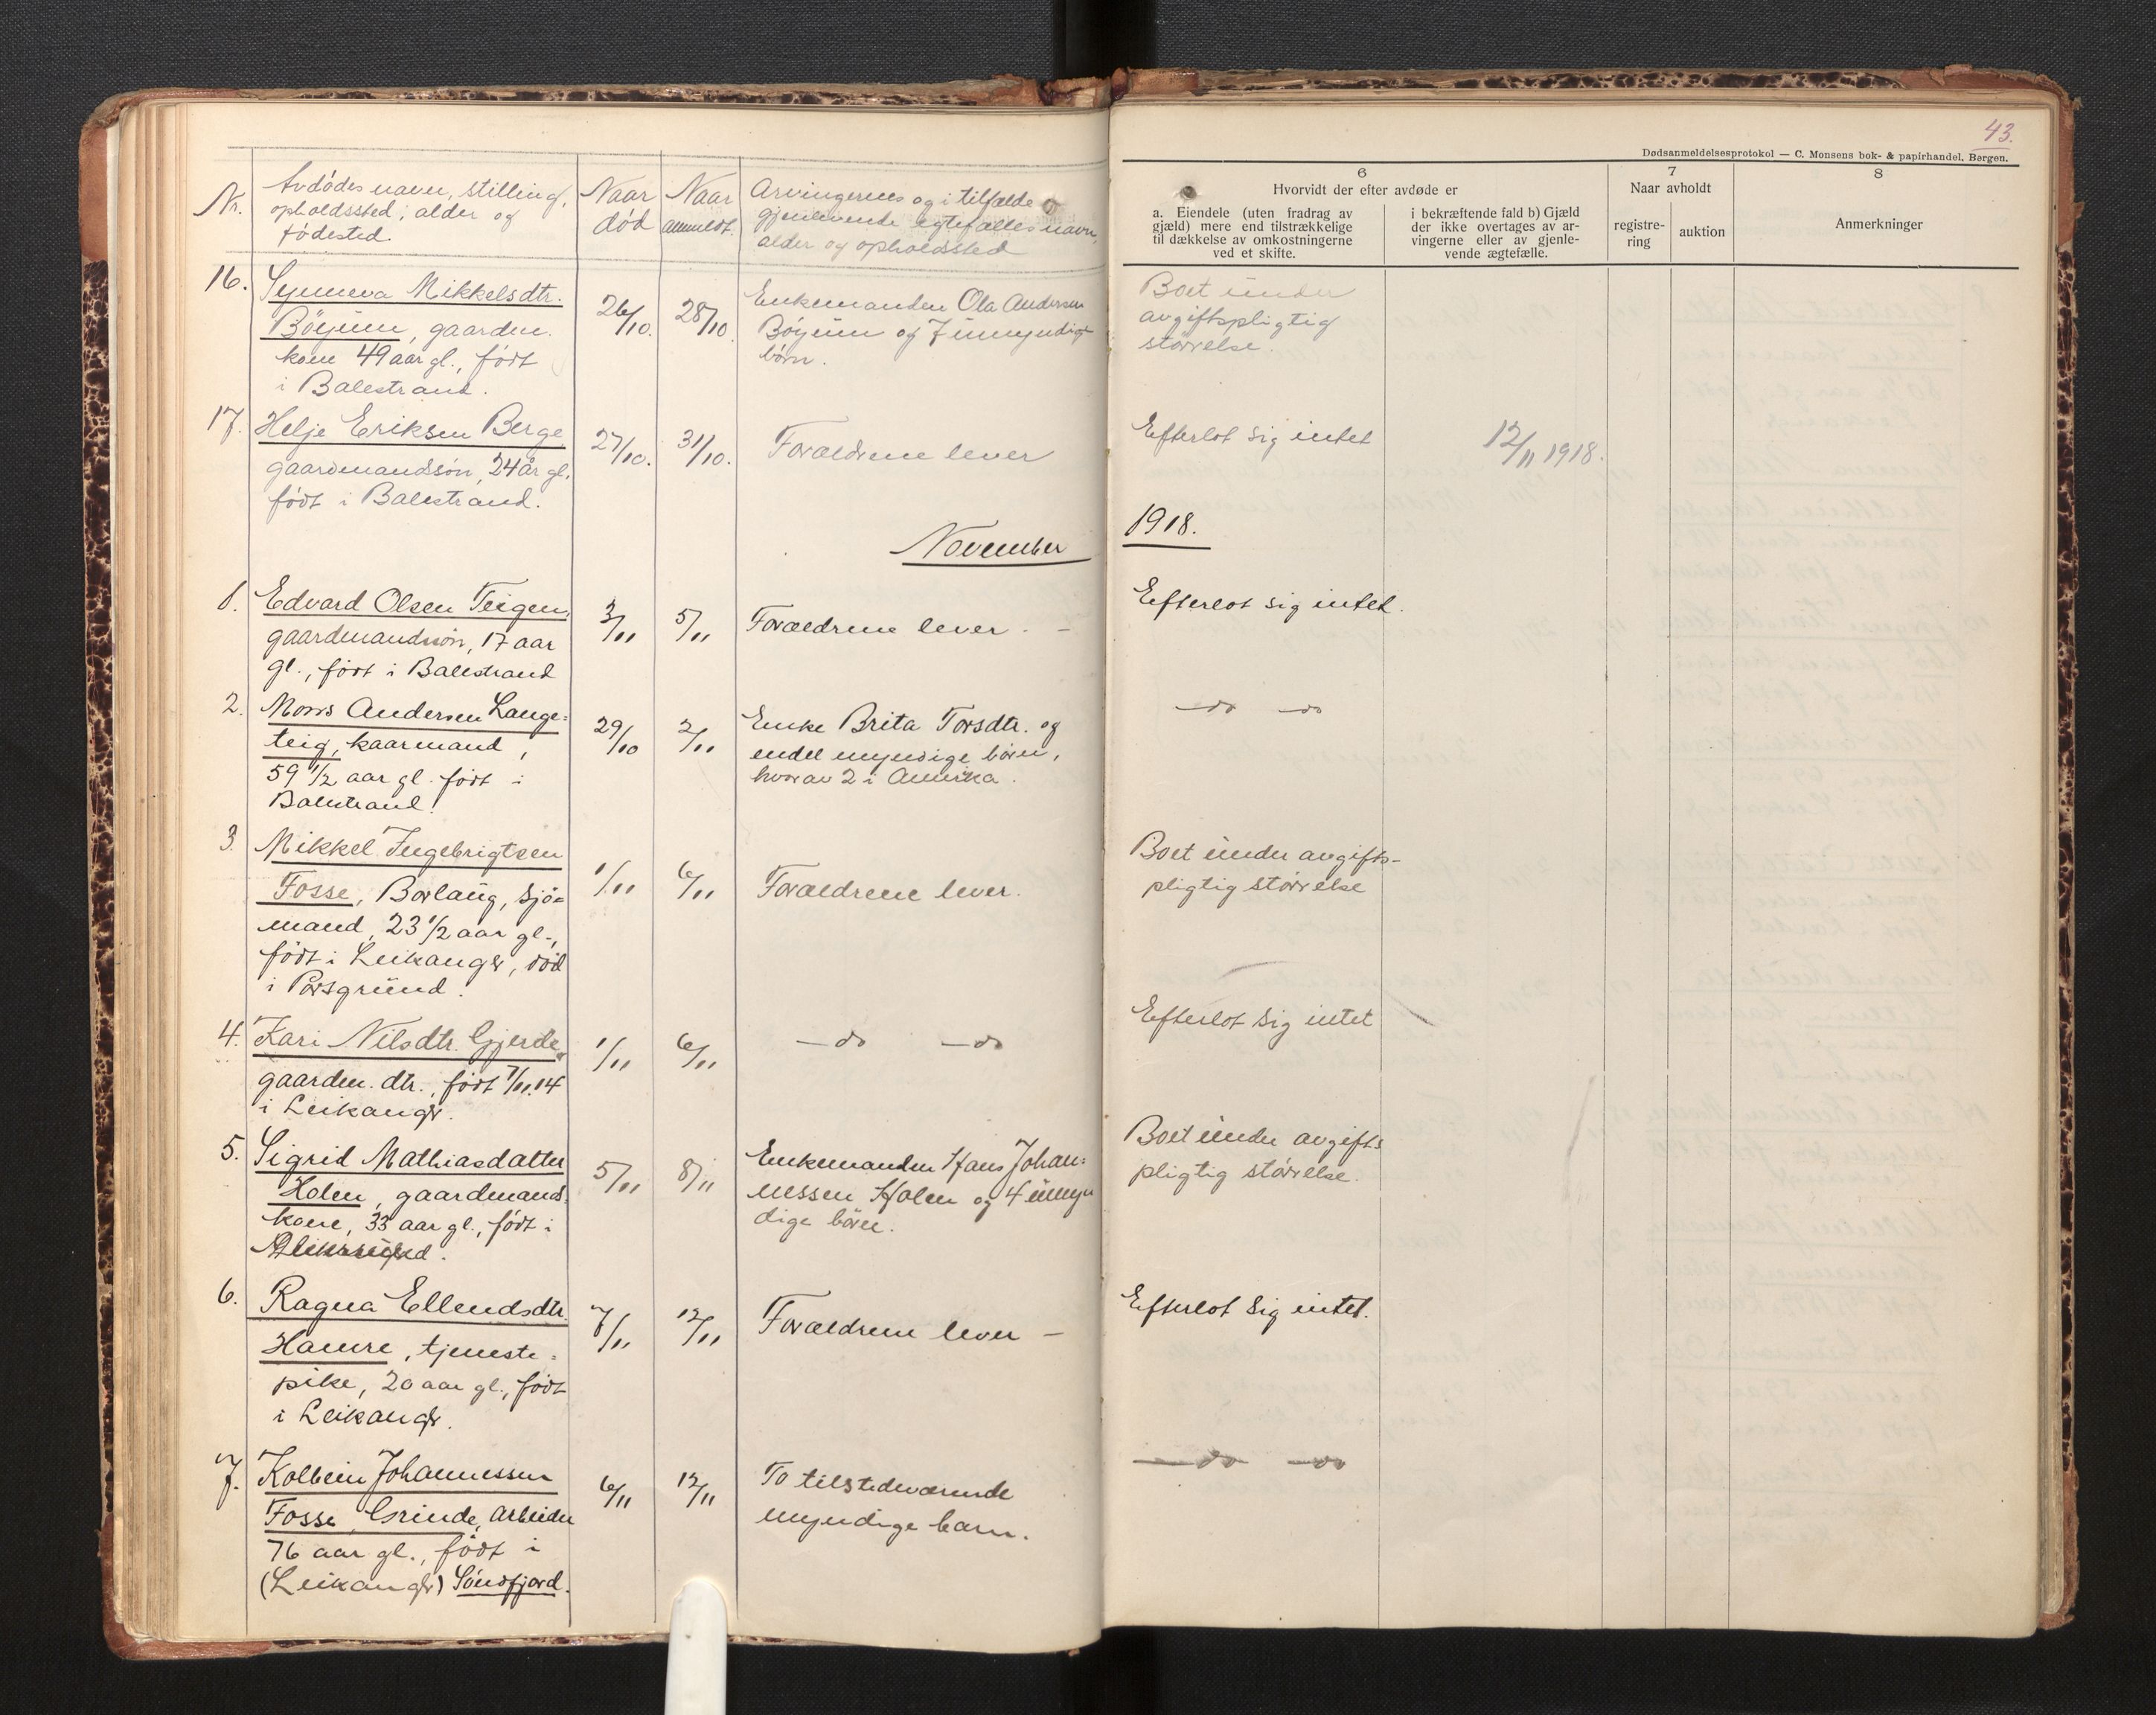 43.
Dødsanmeldelsesprotokol — C. Monsens bok- & papirhandel, Bergen.
Nr.
Avdødes navn, stilling,
opholdssted, alder og
fødested.
Naar
død
Naar
anmeldt.
Arvingernes og i tilfælde
gjenlevende egtefælles navn,
alder og opholdssted
6
Hvorvidt der efter avdøde er
a. Eiendele (uten fradrag av
gjæld) mere end tilstrækkelige
til dækkelse av omkostningerne
ved et skifte.
i bekræftende fald b) Gjæld
der ikke overtages av ar-
vingerne eller av gjenle-
vende ægtefælle.
7
Naar avholdt
registre-
ring
auktion
8
Anmerkninger
16.
Synneva Mikkelsdtr.
Böyum, gaardm.
kone 49 aar gl., født
i Balestrand.
26/10.
28/10.
Enkemanden Ola Andersen
Böyum og 7 umyndige
børn.
Boet under
avgiftspligtig
størrelse.
17.
Helje Eriksen Berge
gaardmandsøn, 24 år gl.
født i Balestrand.
27/10.
31/10.
Forældrene lever
Efterlot sig intet
12/11 1918.
November
1918.
1.
Edvard Olsen Teigen,
gaardmandsøn, 17 aar
gl., født i Balestrand
3/11
5/11
Forældrene lever. –
Efterlot sig intet.
2.
Mons Andersen Lange=
teig, kaarmand,
59 1/2 aar gl. født i
Balestrand.
29/10
2/11
Enke Brita Torsdtr. og
endel myndige børn,
hvorav 2 i Amerika.
— do — do
3.
Mikkel Ingebrigtsen
Fosse, Borlaug, sjø=
mand, 23 1/2 aar gl.,
født i Leikanger, død
i Porsgrund.
1/11
6/11
Forældrene lever.
Boet under avgifts-
pligtig størrelse
4.
Kari Nilsdtr. Gjerde,
gaardm. dtr., født 7/11.14
i Leikanger.
1/11
6/11
— do — do
Efterlot sig intet
5.
Sigrid Mathiasdatter
Holen, gaardmands
kone, 33 aar gl., født i
5/11
8/11
Enkemanden Hans Johan=
nessen Holen og 4 umyn
dige børn.
Boet under avgifts
pligtig størrelse.
6.
Ragna Ellendsdtr.
Hamre, tjeneste=
pike, 20 aar gl., født
i Leikanger.
7/11
12/11
Forældrene lever –
Efterlot sig intet.
7.
Kolbein Johannessen
Fosse, Grinde, arbeider
76 aar gl., født i
(Leikanger) Søndfjord.
6/11
12/11
To tilstedeværende
myndige barn.
— do — do